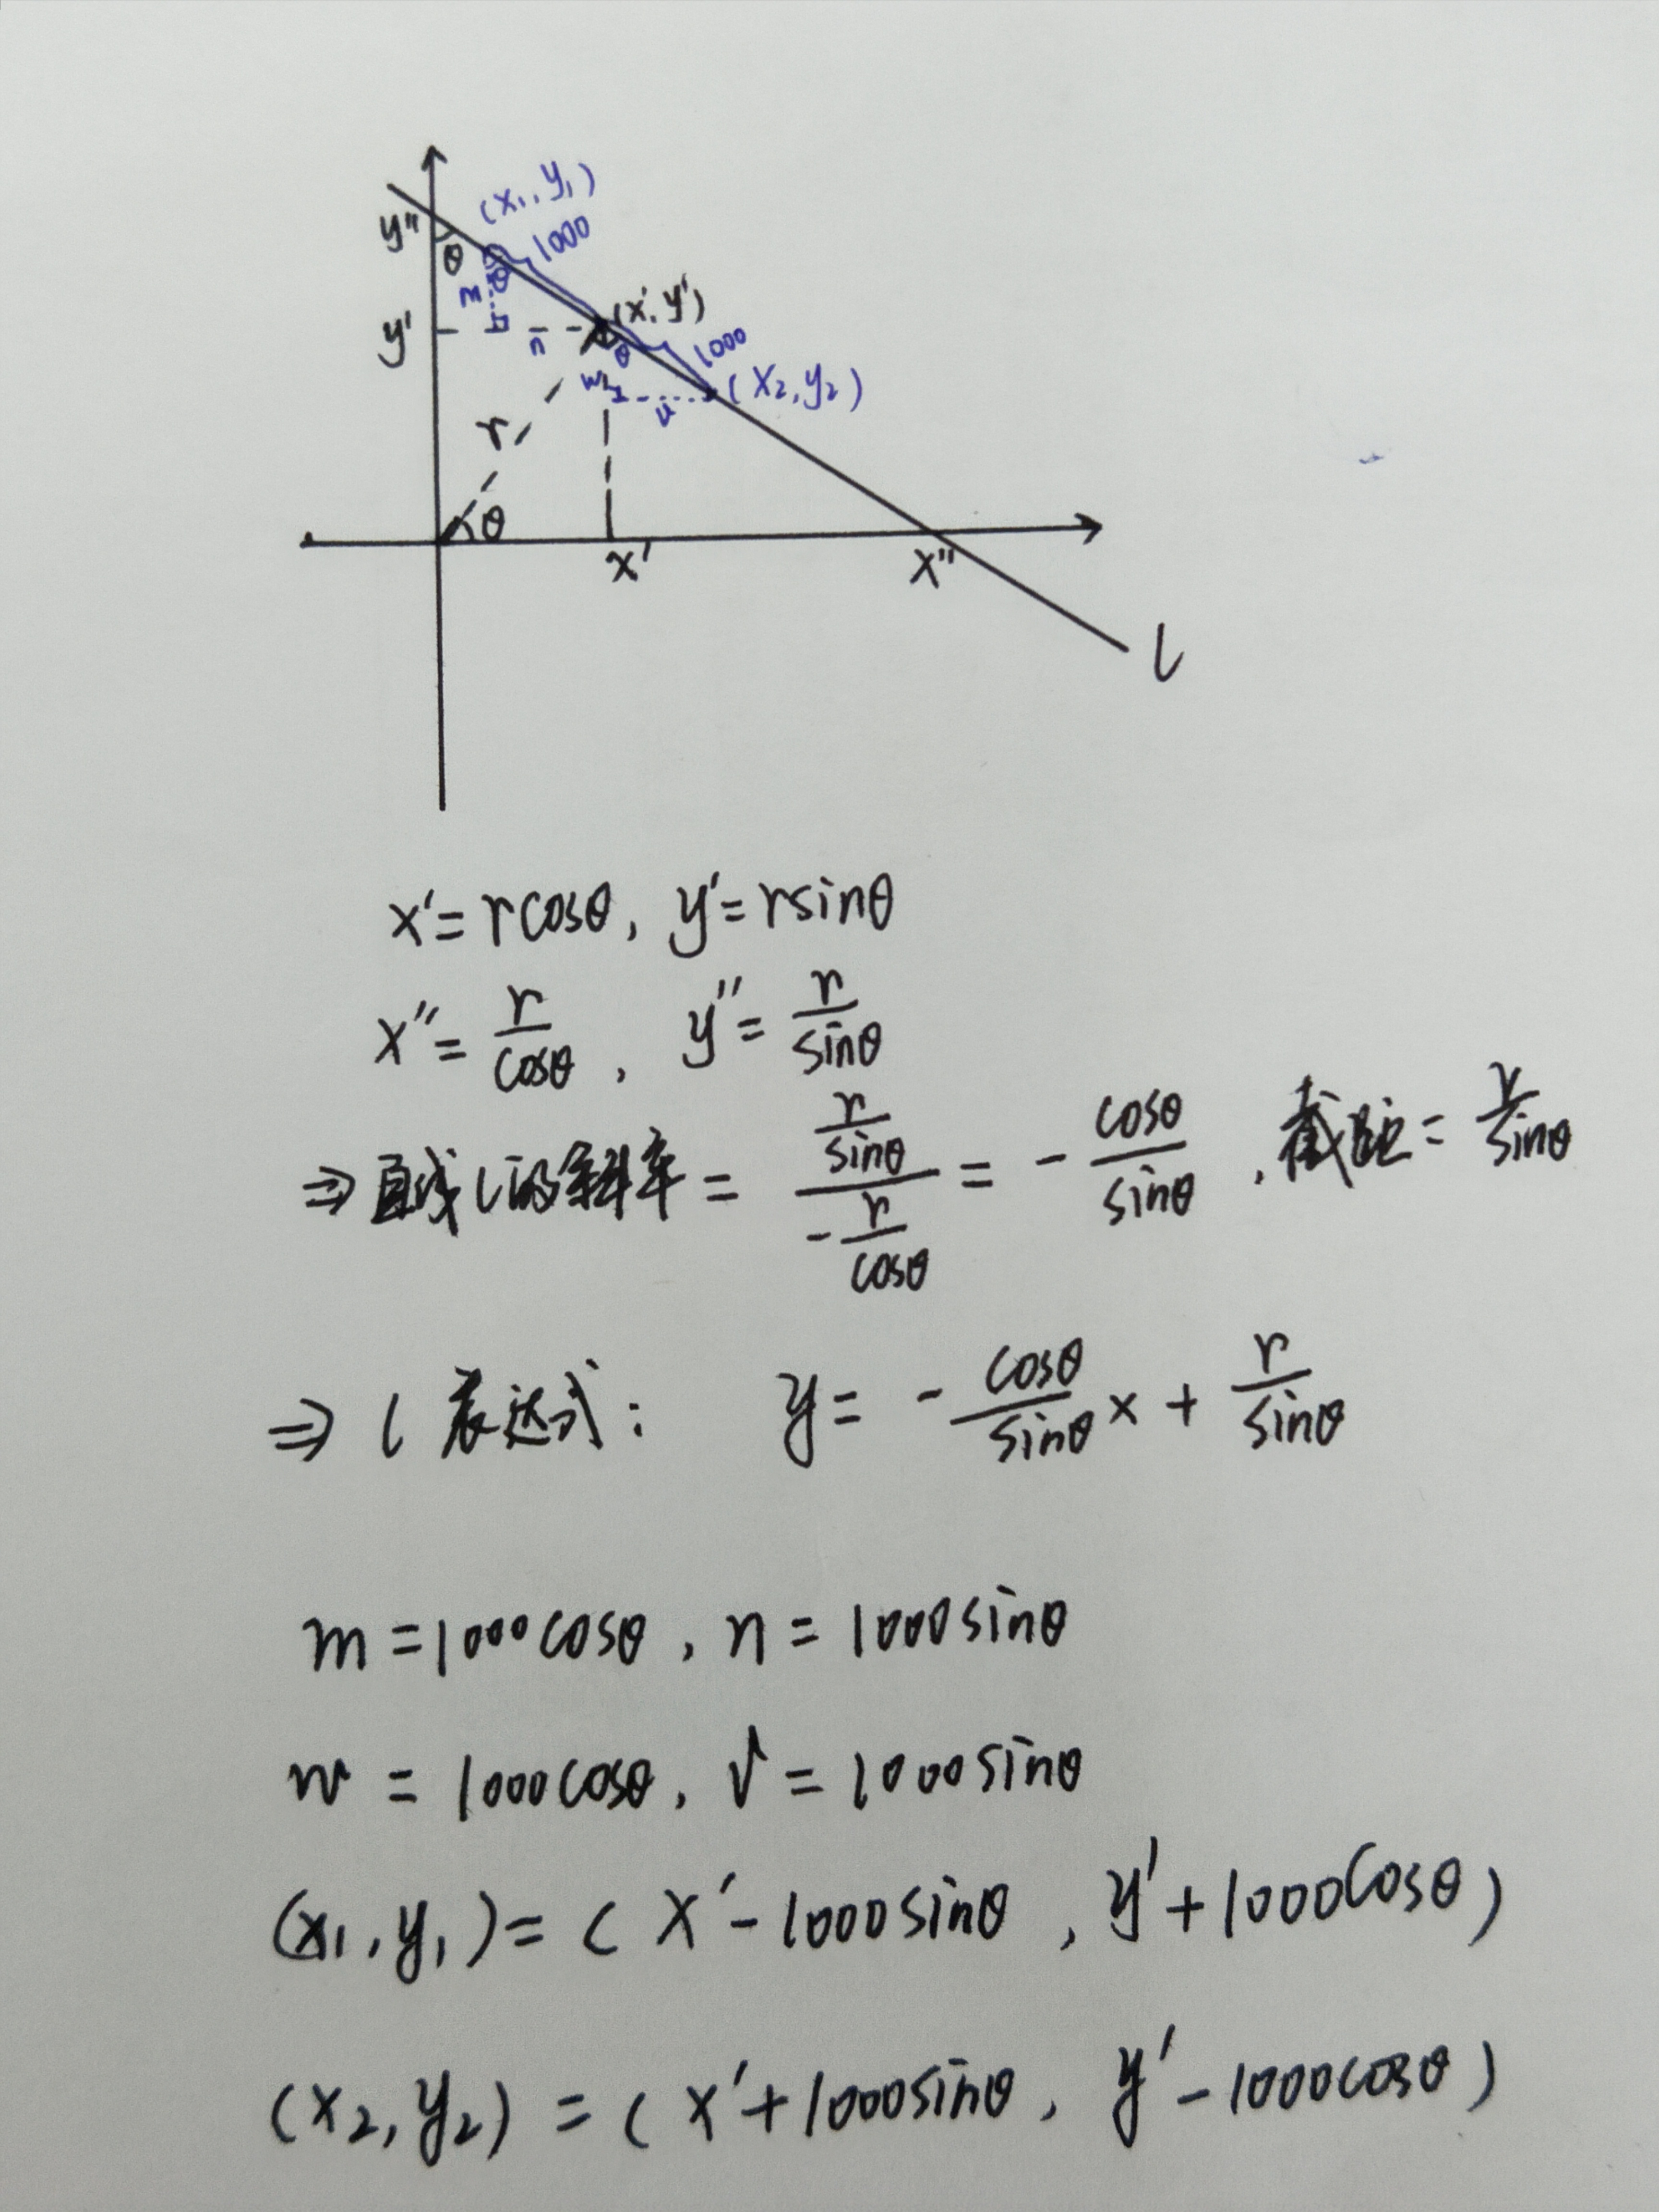 (x₁,y₁)
y''
θ
1000
θ
m
(x',y')
y'
n
θ
1000
w
(x₂,y₂)
v
r
θ
x'
x''
l
x'=rcosθ, y'=rsinθ
x''= r/cosθ , y''= r/sinθ
⇒直线l的斜率 = (r/sinθ)/(-r/cosθ) = - cosθ/sinθ , 截距= r/sinθ
⇒ l 表达式: y= - cosθ/sinθ x + r/sinθ
m=1000cosθ , n=1000sinθ
w = 1000cosθ, v=1000sinθ
(x₁,y₁)=( x'-1000sinθ , y'+1000cosθ)
(x₂,y₂) = ( x'+1000sinθ, y'-1000cosθ)